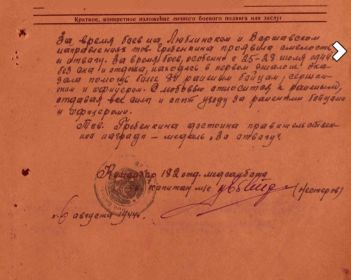 Краткое, конкретное изложение личного боевого подвига или заслуг
За время боев на Люблинском и Варшавском
направлениях тов. Гребенкина проявила смелость
и отвагу. За время боев, особенно с 25-29 июля 1944
без сна и отдыха, находясь в первом
зала помощь более раненым бойцам, сержан-
там и офицерам. С любовью относится к раненым,
отдавая все силы и опыт уходу за ранеными бойцами
и офицерами.
Тов. Гребенкина достойна правительствен-
ной награды - медаль "За отвагу"
Командир 192 отд. медсанбата
капитан м/с (Нестеров)
6 августа 1944г.